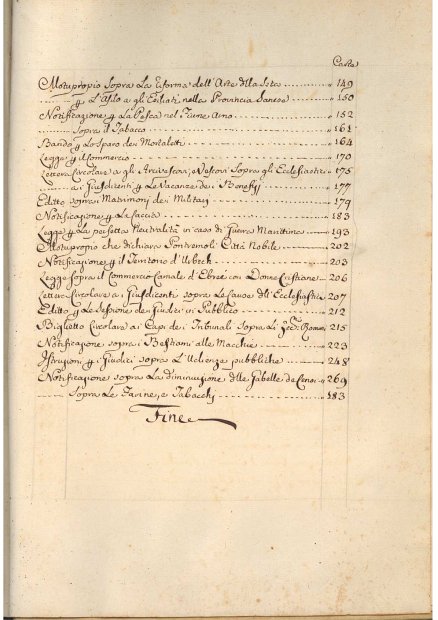 Carte
Motuproprio Sopra La riforma dell'Arte della Seta 149
p L'Asilo a gli Esiliati nella Provincia Sanese 150
Notificazione p La Pesca nel Fiume Arno 152
Sopra il Tabacco 161
Bando p Lo Sparo dei Mortaletti 164
Legge p il Commercio 170
Lettera Circolare a gli Arcivescovi, e Vescovi Sopra gli Ecclesiastici 175
a i Giusdicenti p Le Vacanze dei Benefizj 177
Editto sopra i Matrimonj dei Militari 179
Notificazione p La Caccia 183
Legge p La perfetta Neutralità in caso di Guerra Marittima 193
Motuproprio che dichiara Pontremoli Città Nobile 202
Notificazione p il Territorio d' 203
Legge sopra il Commercio Carnale d'Ebrei con Donne Cristiane 206
Lettera Circolare a i Giusdicenti sopra Le Cause dli Ecclesiastici 207
Editto p Le Sessione dei Giudici in Pubblico 212
Biglietto Circolare a i Capi dei Tribunali Sopra Li 215
Notificazione sopra i Bestiami alle Macchie 223
Istruzioni p i Giudici sopra L'Udienze pubbliche 248
Notificazione sopra La diminuzione dlle Gabelle de 269
Sopra Le Farine, e Tabacchi 183
Fine